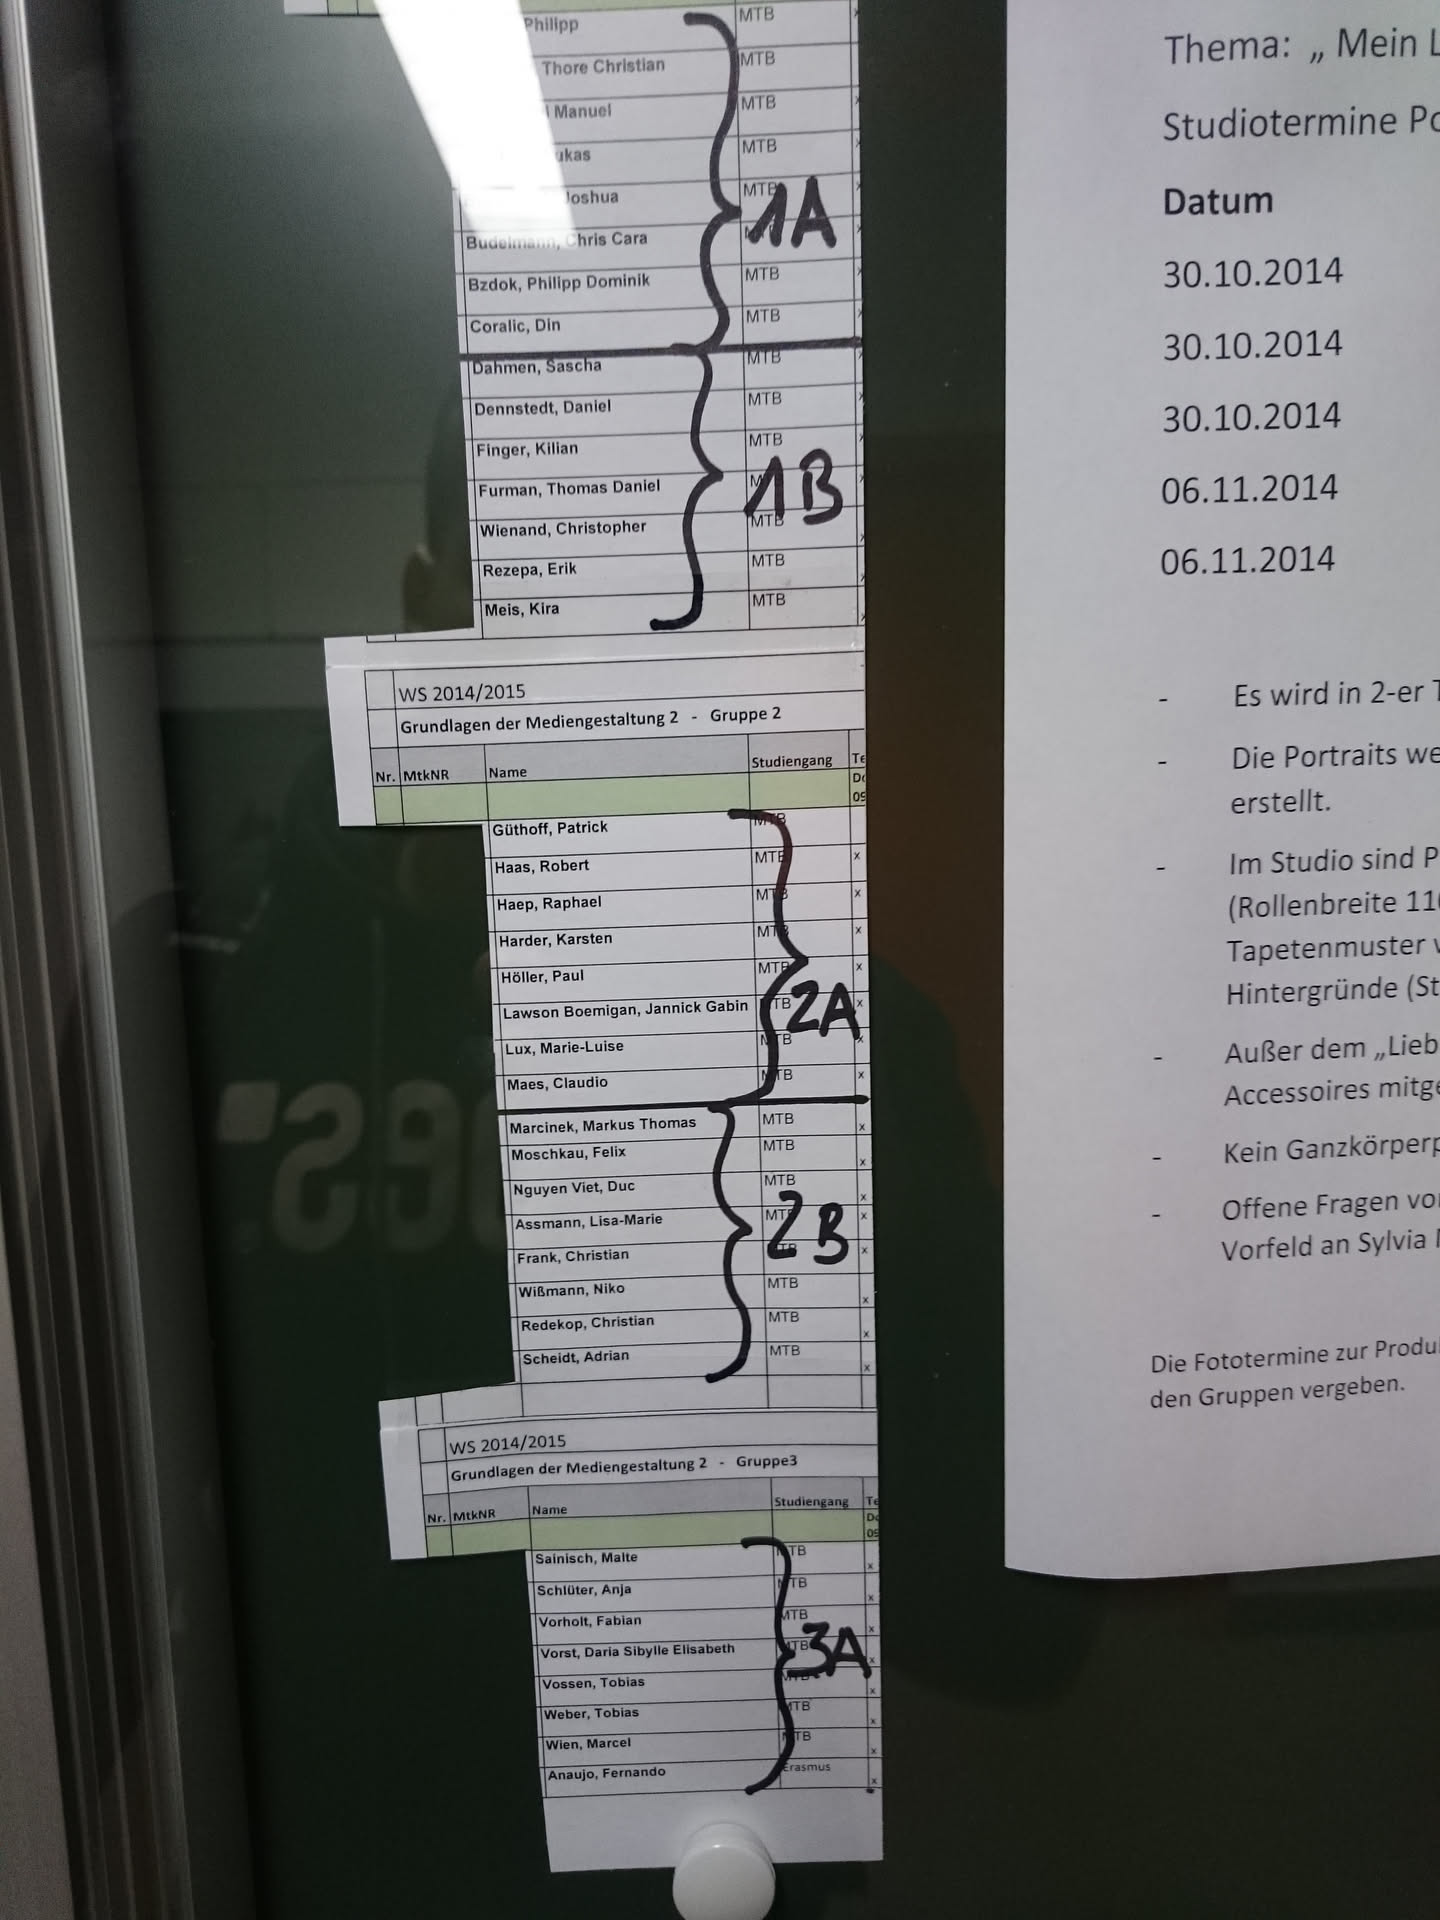 Philipp MTB
Thore Christian MTB
Manuel MTB
ukas MTB
Joshua MTB
1A
Budelmann, Chris Cara
Bzdok, Philipp Dominik MTB
Coralic, Din MTB
Dahmen, Sascha MTB
Dennstedt, Daniel MTB
Finger, Kilian MTB
Furman, Thomas Daniel
1B
Wienand, Christopher MTB
Rezepa, Erik MTB
Meis, Kira MTB
WS 2014/2015
Grundlagen der Mediengestaltung 2 - Gruppe 2
Nr. MtkNR Name Studiengang Te
Do
09
Güthoff, Patrick MTB
Haas, Robert MTB x
Haep, Raphael MTB x
Harder, Karsten MTB x
Höller, Paul MTB x
Lawson Boemigan, Jannick Gabin MTB x
2A
Lux, Marie-Luise MTB x
Maes, Claudio MTB x
Marcinek, Markus Thomas MTB x
Moschkau, Felix MTB x
Nguyen Viet, Duc MTB x
Assmann, Lisa-Marie MTB x
2B
Frank, Christian MTB x
Wißmann, Niko MTB x
Redekop, Christian MTB x
Scheidt, Adrian MTB x
WS 2014/2015
Grundlagen der Mediengestaltung 2 - Gruppe3
Nr. MtkNR Name Studiengang Te
Do
09
Sainisch, Malte MTB x
Schlüter, Anja MTB x
Vorholt, Fabian MTB x
Vorst, Daria Sibylle Elisabeth MTB x
3A
Vossen, Tobias MTB x
Weber, Tobias MTB x
Wien, Marcel MTB x
Anaujo, Fernando Erasmus x
Thema: „ Mein L
Studiotermine Po
Datum
30.10.2014
30.10.2014
30.10.2014
06.11.2014
06.11.2014
- Es wird in 2-er T
- Die Portraits we
erstellt.
- Im Studio sind P
(Rollenbreite 11
Tapetenmuster
Hintergründe (St
- Außer dem „Lieb
Accessoires mitge
- Kein Ganzkörperp
- Offene Fragen vo
Vorfeld an Sylvia
Die Fototermine zur Produ
den Gruppen vergeben.